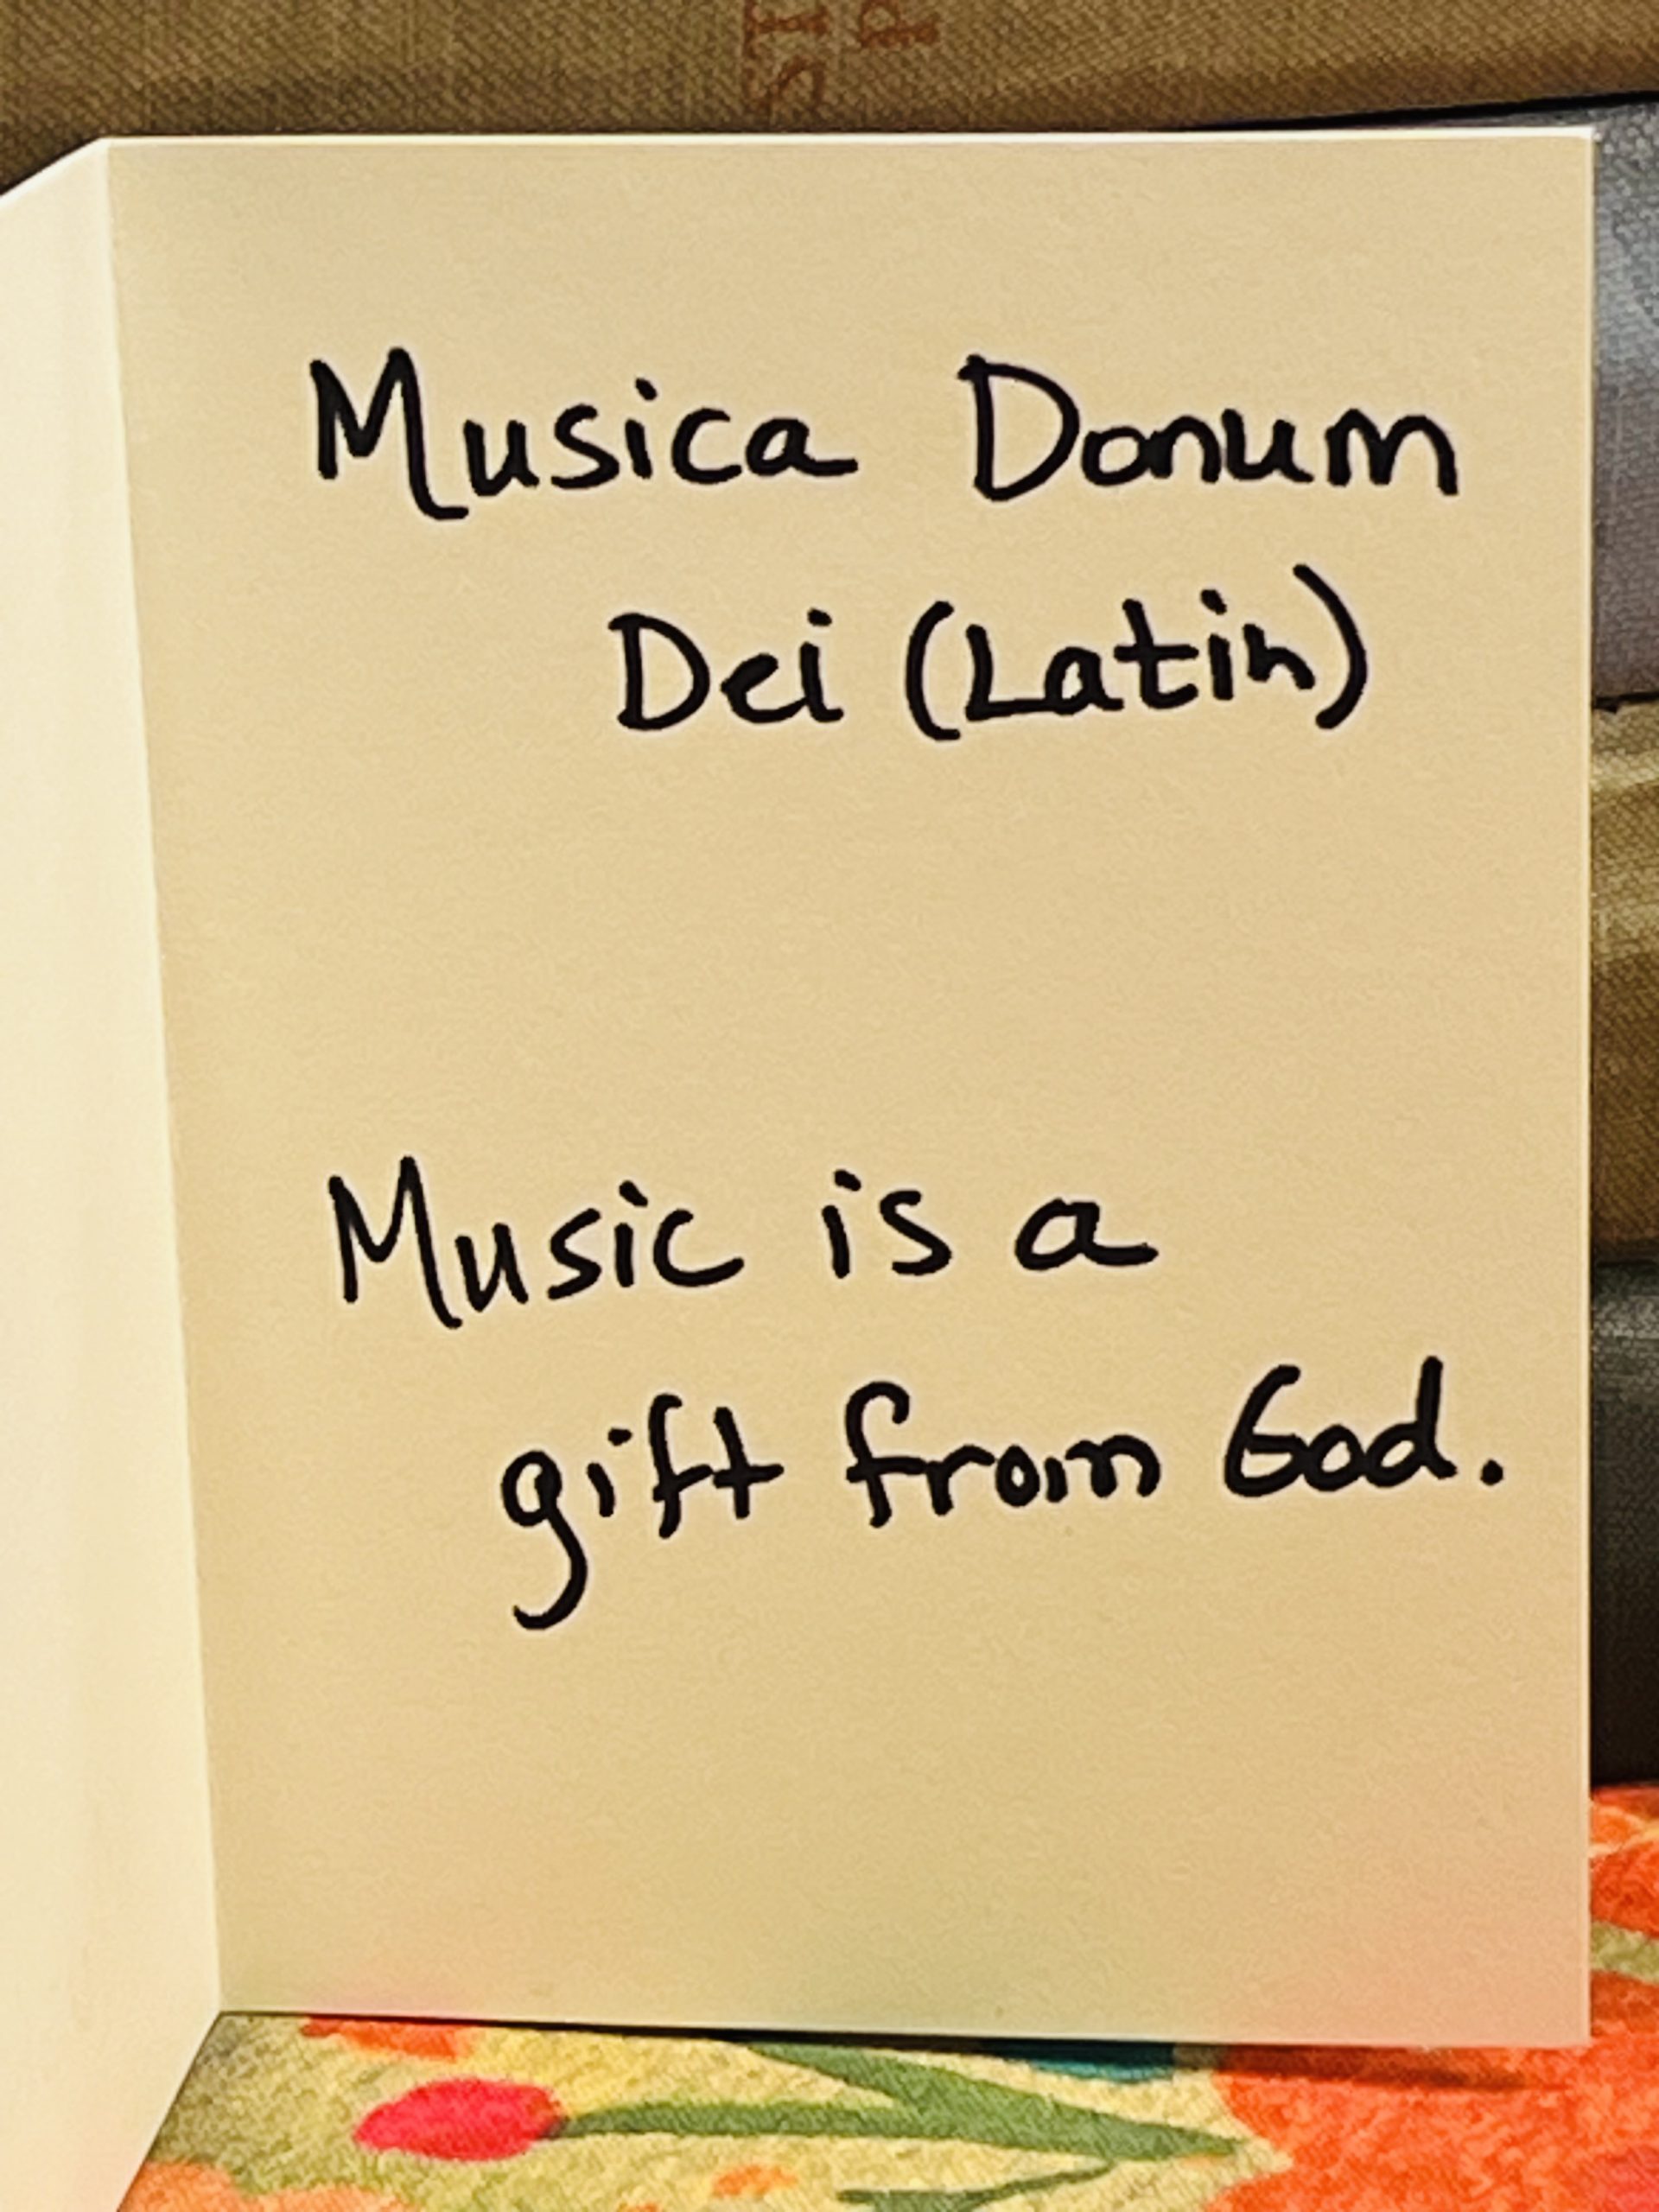 Musica Donum
Dei (Latin)
Music is a
gift from God.